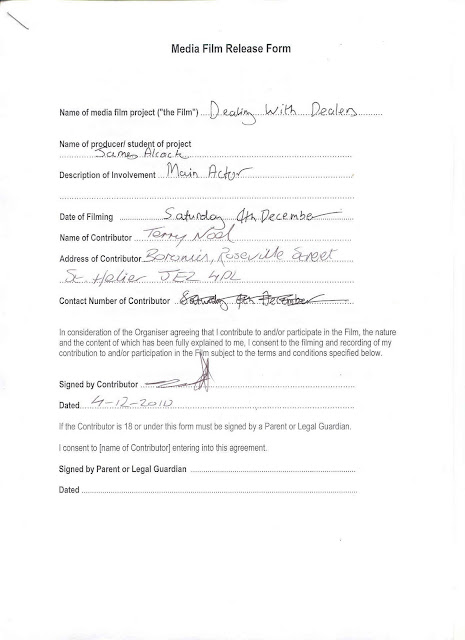 Media Film Release Form
Name of media film project ("the Film") Dealing With Dealers
Name of producer/ student of project
James Alcock
Description of Involvement Main Actor
Date of Filming Saturday 4th December
Name of Contributor Terry Noel
Address of Contributor Roseville Street
St Helier JE2 4PL
Contact Number of Contributor Saturday 4th December
In consideration of the Organiser agreeing that I contribute to and/or participate in the Film, the nature
and the content of which has been fully explained to me, I consent to the filming and recording of my
contribution to and/or participation in the Film subject to the terms and conditions specified below.
Signed by Contributor
Dated 4-12-2010
If the Contributor is 18 or under this form must be signed by a Parent or Legal Guardian.
I consent to [name of Contributor] entering into this agreement.
Signed by Parent or Legal Guardian
Dated